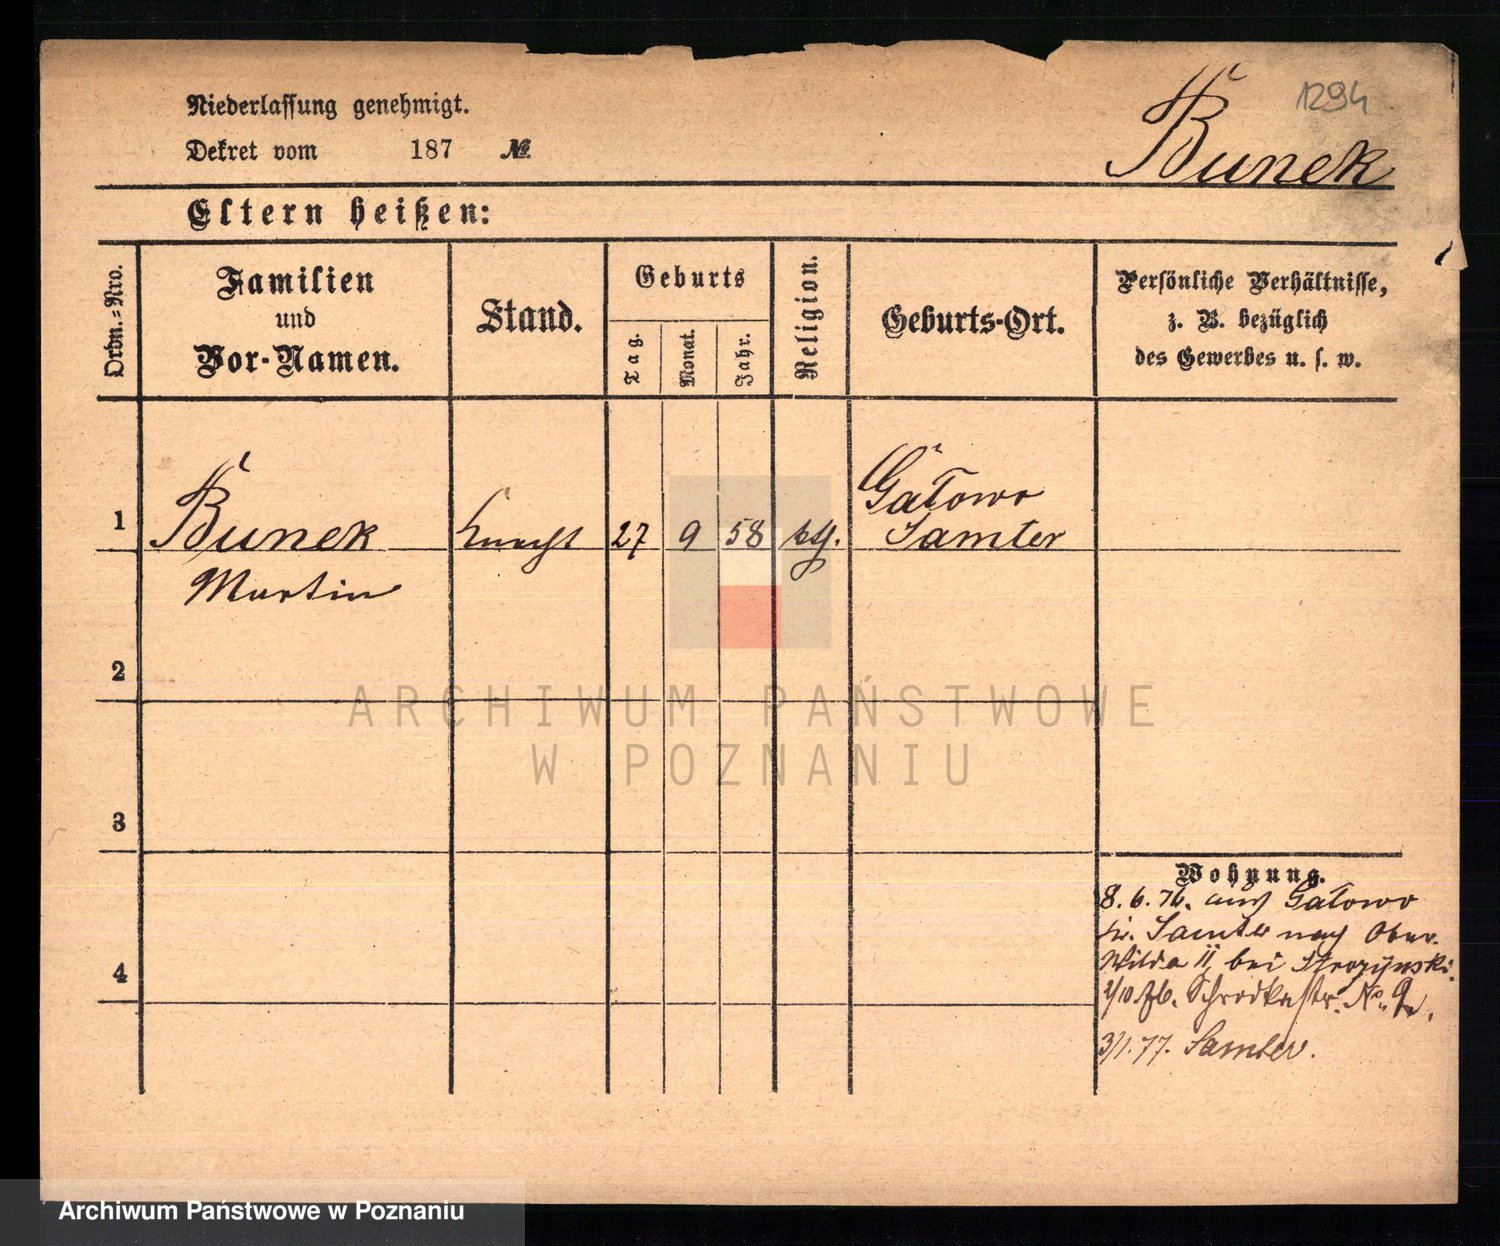 1294
Niederlassung genehmigt.
Dekret vom 187 №
Bunek
Eltern heißen:
Ordn.-Nro.
Familien
und
Vor-Namen.
Stand.
Geburts
Tag.
Monat.
Jahr.
Religion.
Geburts-Ort.
Persönliche Verhältnisse,
z. B. bezüglich
des Gewerbes u. s. w.
1
Bunek
Martin
Knecht
27
9
58
kth.
Gałowo
Samter
2
3
4
Wohnung.
8.6.76. aus Gałowo
Kr. Samter nach Ober-
Wilda 11, bei Strozynski.
2/10 76. Schrodkastr. No.
3/1.77. Samter.
ARCHIWUM PAŃSTWOWE
W POZNANIU
Archiwum Państwowe w Poznaniu